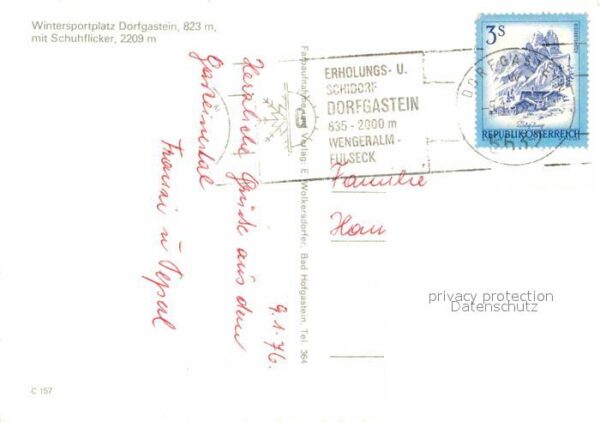 Wintersportplatz Dorfgastein, 823 m,
mit Schuhflicker, 2209 m
9.1.76.
Herzliche Grüße aus dem
Gasteinertal
Franzi u
Farbaufnahme und Verlag: E. Wolkersdorfer, Bad Hofgastein, Tel. 364
ERHOLUNGS- U.
SCHIDORF
DORFGASTEIN
835 - 2000 m
WENGERALM -
FULSECK
3S
REPUBLIK ÖSTERREICH
DORFGASTEIN
5632
Familie
Han
privacy protection
DATENSCHUTZ
C 157